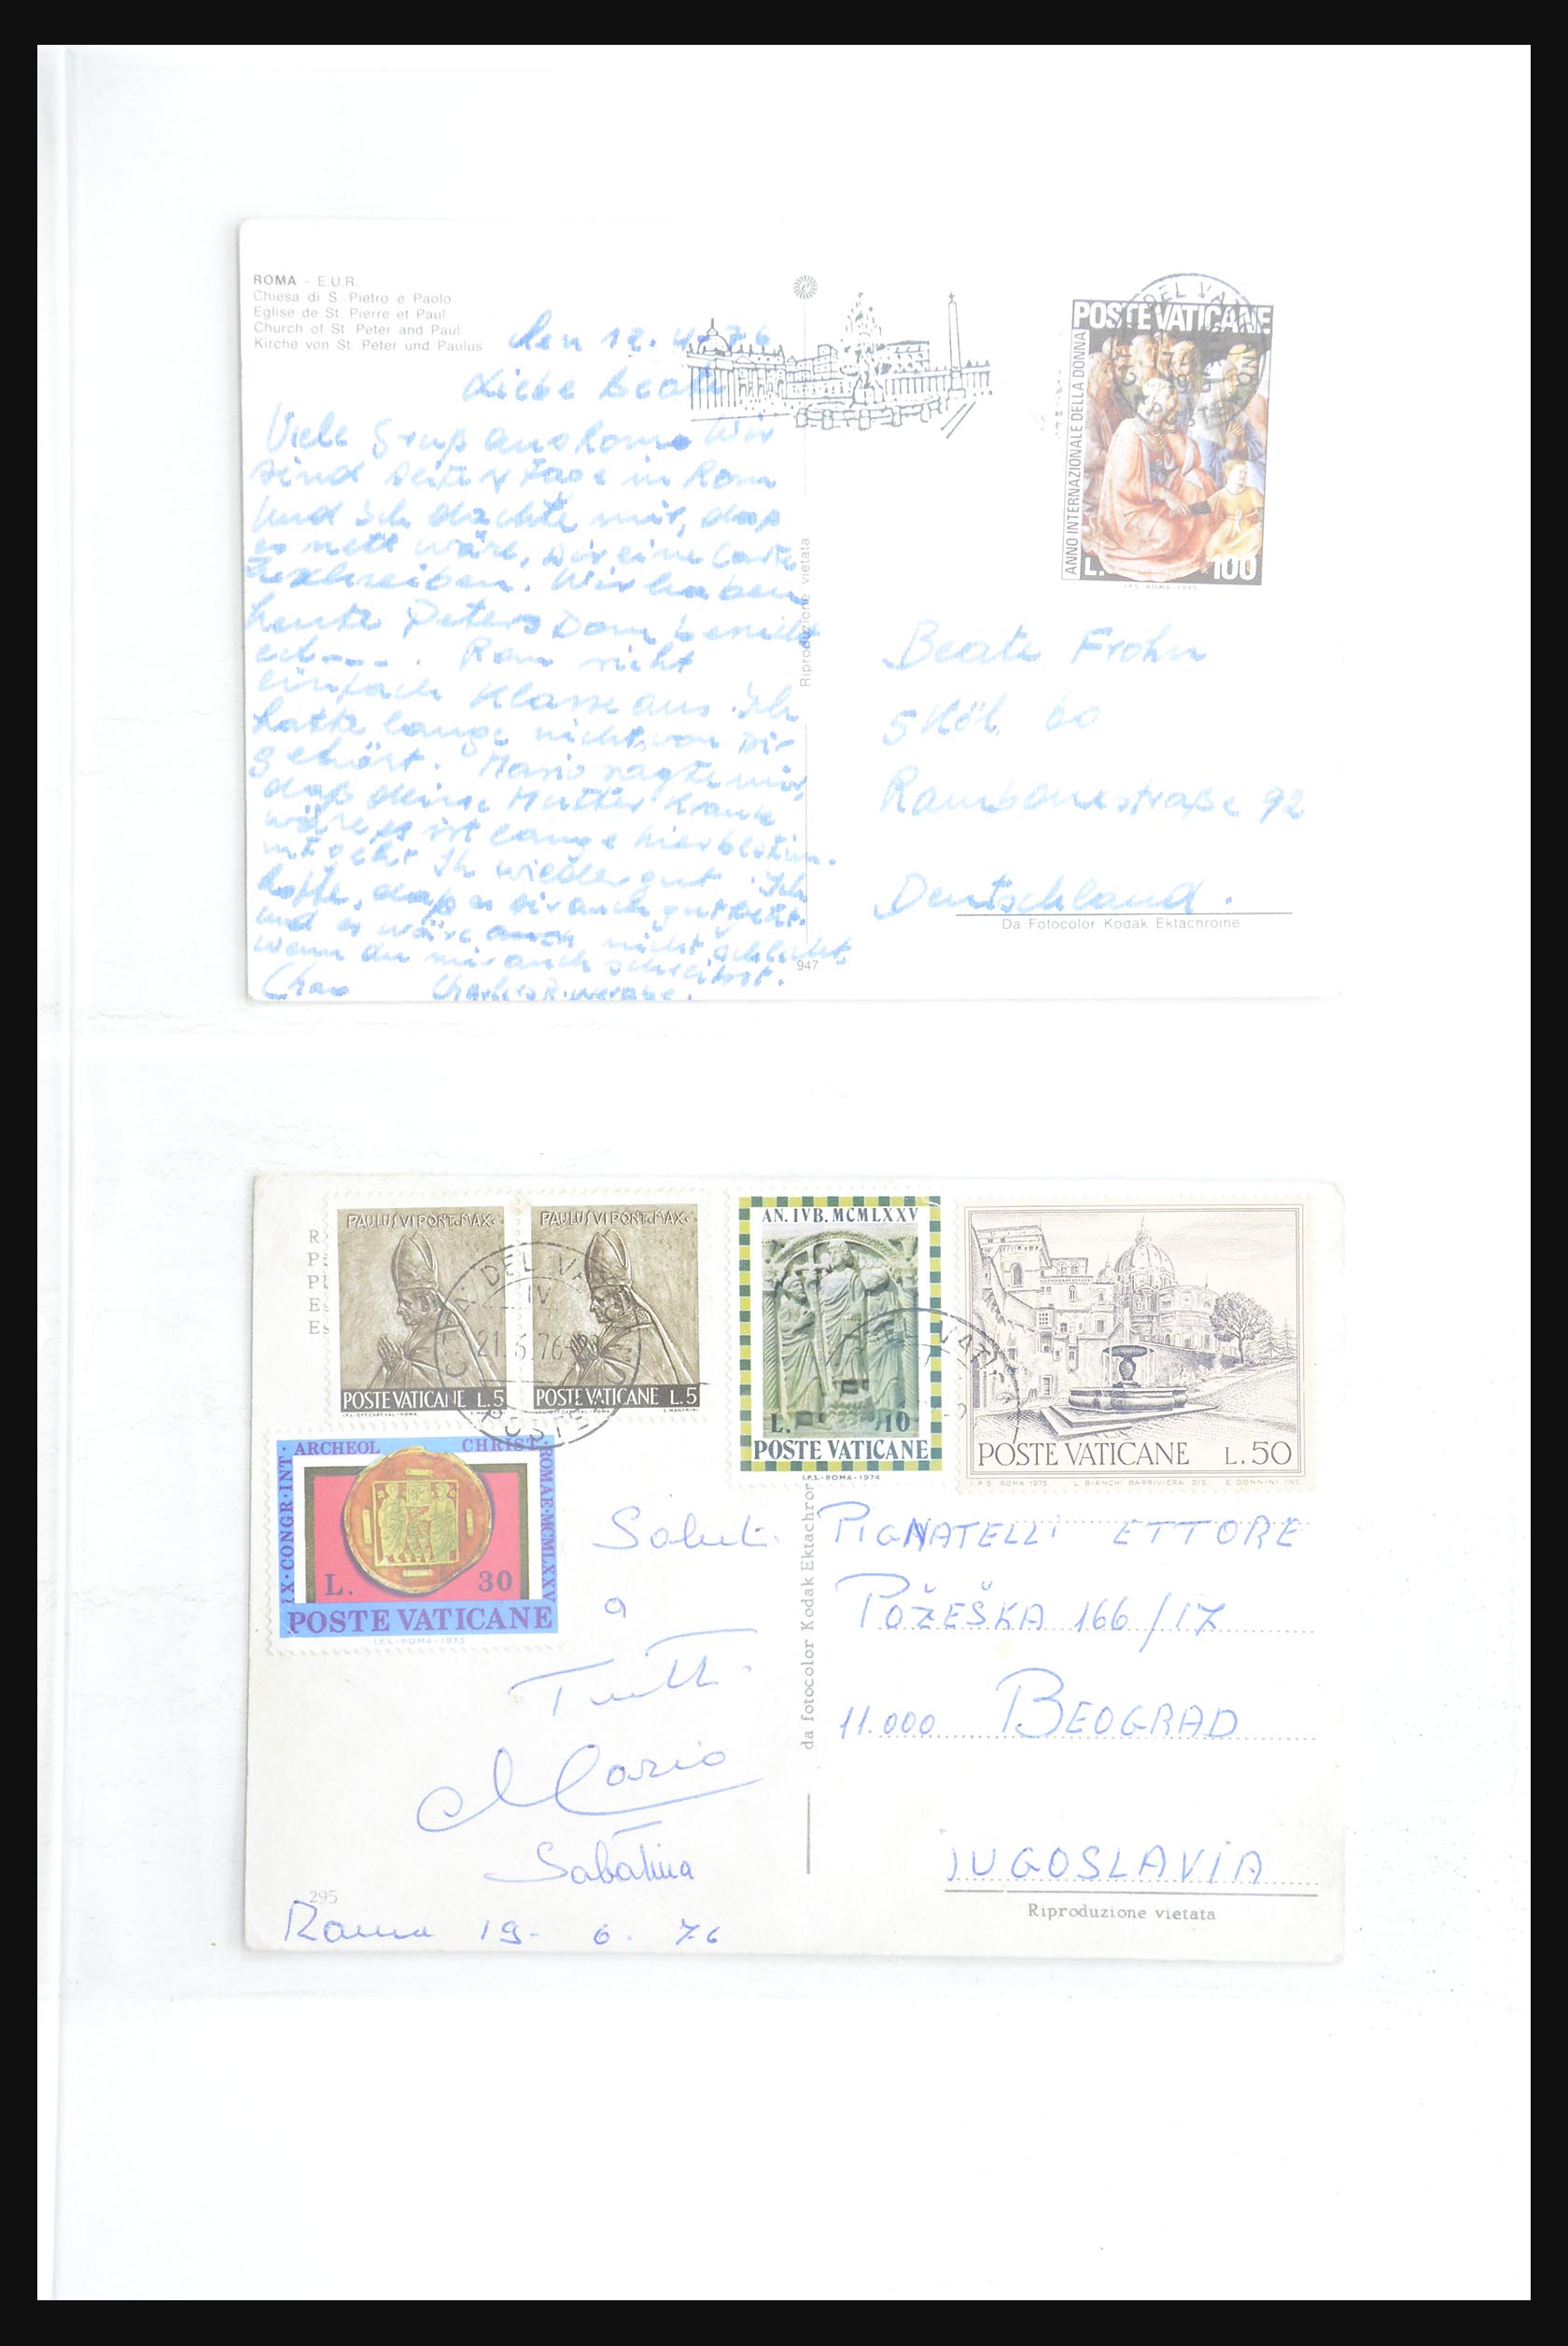 ROMA - E.U.R.
Chiesa di S. Pietro e Paolo
Eglise de St. Pierre et Paul
Church of St. Peter and Paul
Kirche von St. Peter und Paulus
den 12.4.76
Liebe Beate
Viele Gruß aus Rom. Wir
sind seit 4 Tage in Rom
und ich dachte mir, daß
es nett wäre, Dir eine Carte
zu schreiben. Wir haben
heute Peters Dom besicht
et---. Rom sieht
einfach Klasse aus. Ich
hatte lange nicht von Dir
gehört. Mario sagte mir,
daß deine Mutter krank
wäre, es ist lange her
geht Ihr wieder gut. Ich
hoffe, daß es Dir auch gut geht.
und es wäre nicht schlecht,
wenn du mir auch schreibst.
Ciao Charles
Riproduzione vietata
947
DEL VA
POSTE VATICANE
ANNO INTERNAZIONALE DELLA DONNA
L. 100
I.P.S. ROMA 1975
Beate Frohn
5 Köl. 60
straße 92
Deutschland.
Da Fotocolor Kodak Ektachrome
R
P
P
E
E
PAULUS VI PONT. MAX.
POSTE VATICANE L.5
PAULUS VI PONT. MAX.
POSTE VATICANE L.5
DEL VA
IV
21.6.76
POSTE
AN. IVB. MCMLXXV
L. 10
POSTE VATICANE
I.P.S.-ROMA-1974
VATI
POSTE VATICANE L.50
I.P.S. ROMA 1975 L. BIANCHI BARRIVIERA DIS. E. DONNINI INC.
IX·CONGR·INT·
ARCHEOL CHRIST
·ROMAE·MCMLXXV
L. 30
POSTE VATICANE
I.P.S.-ROMA-1975
Saluti
a
Tutti
Mario
Sabatina
295
Roma 19-6.76
da fotocolor Kodak Ektachrom
PIGNATELLI ETTORE
POŽEŠKA 166/IX
11.000 BEOGRAD
JUGOSLAVIA
Riproduzione vietata